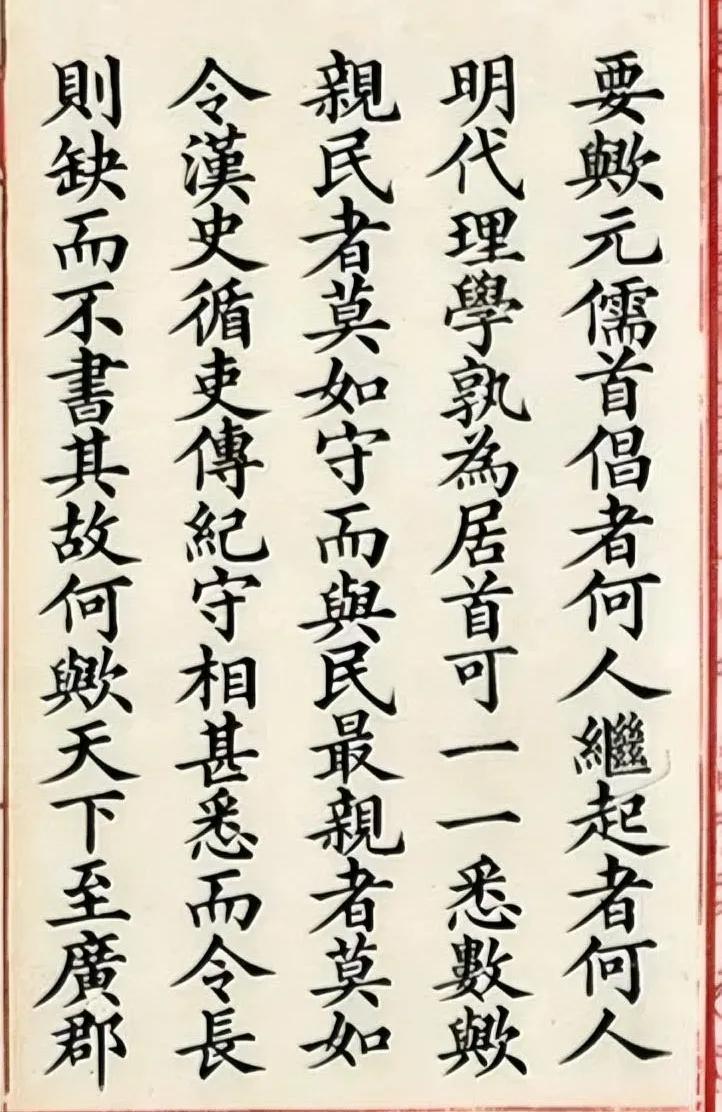 要歟元儒首倡者何人繼起者何人
明代理學孰為居首可一一悉數歟
親民者莫如守而與民最親者莫如
令漢史循吏傳紀守相甚悉而令長
則缺而不書其故何歟天下至廣郡